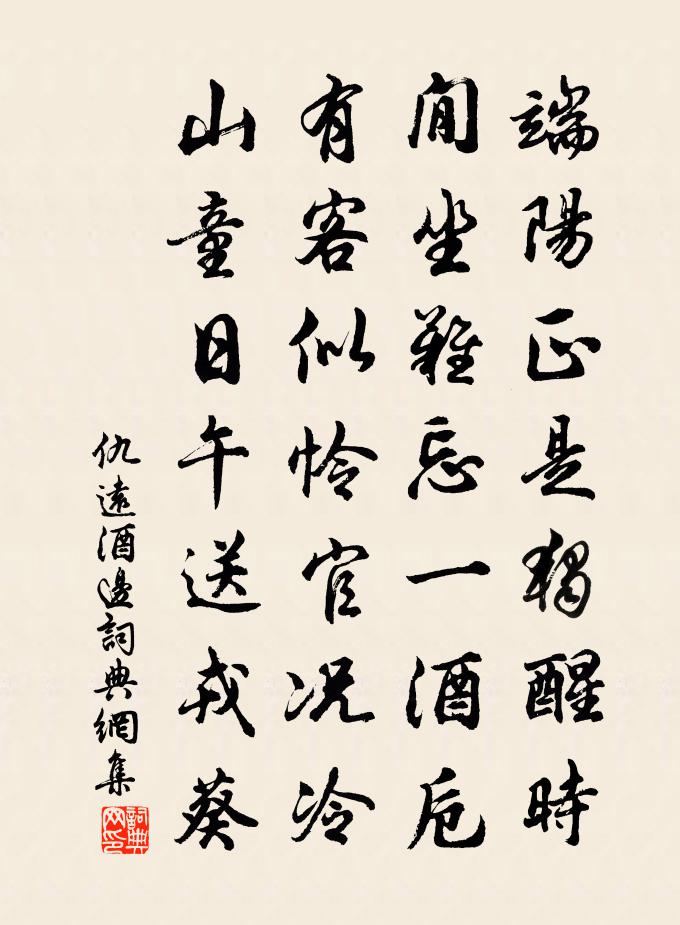 端陽正是獨醒時
閒坐難忘一酒卮
有客似怜官况冷
山童日午送戎葵
仇遠酒邊詞典網集
詞典網印